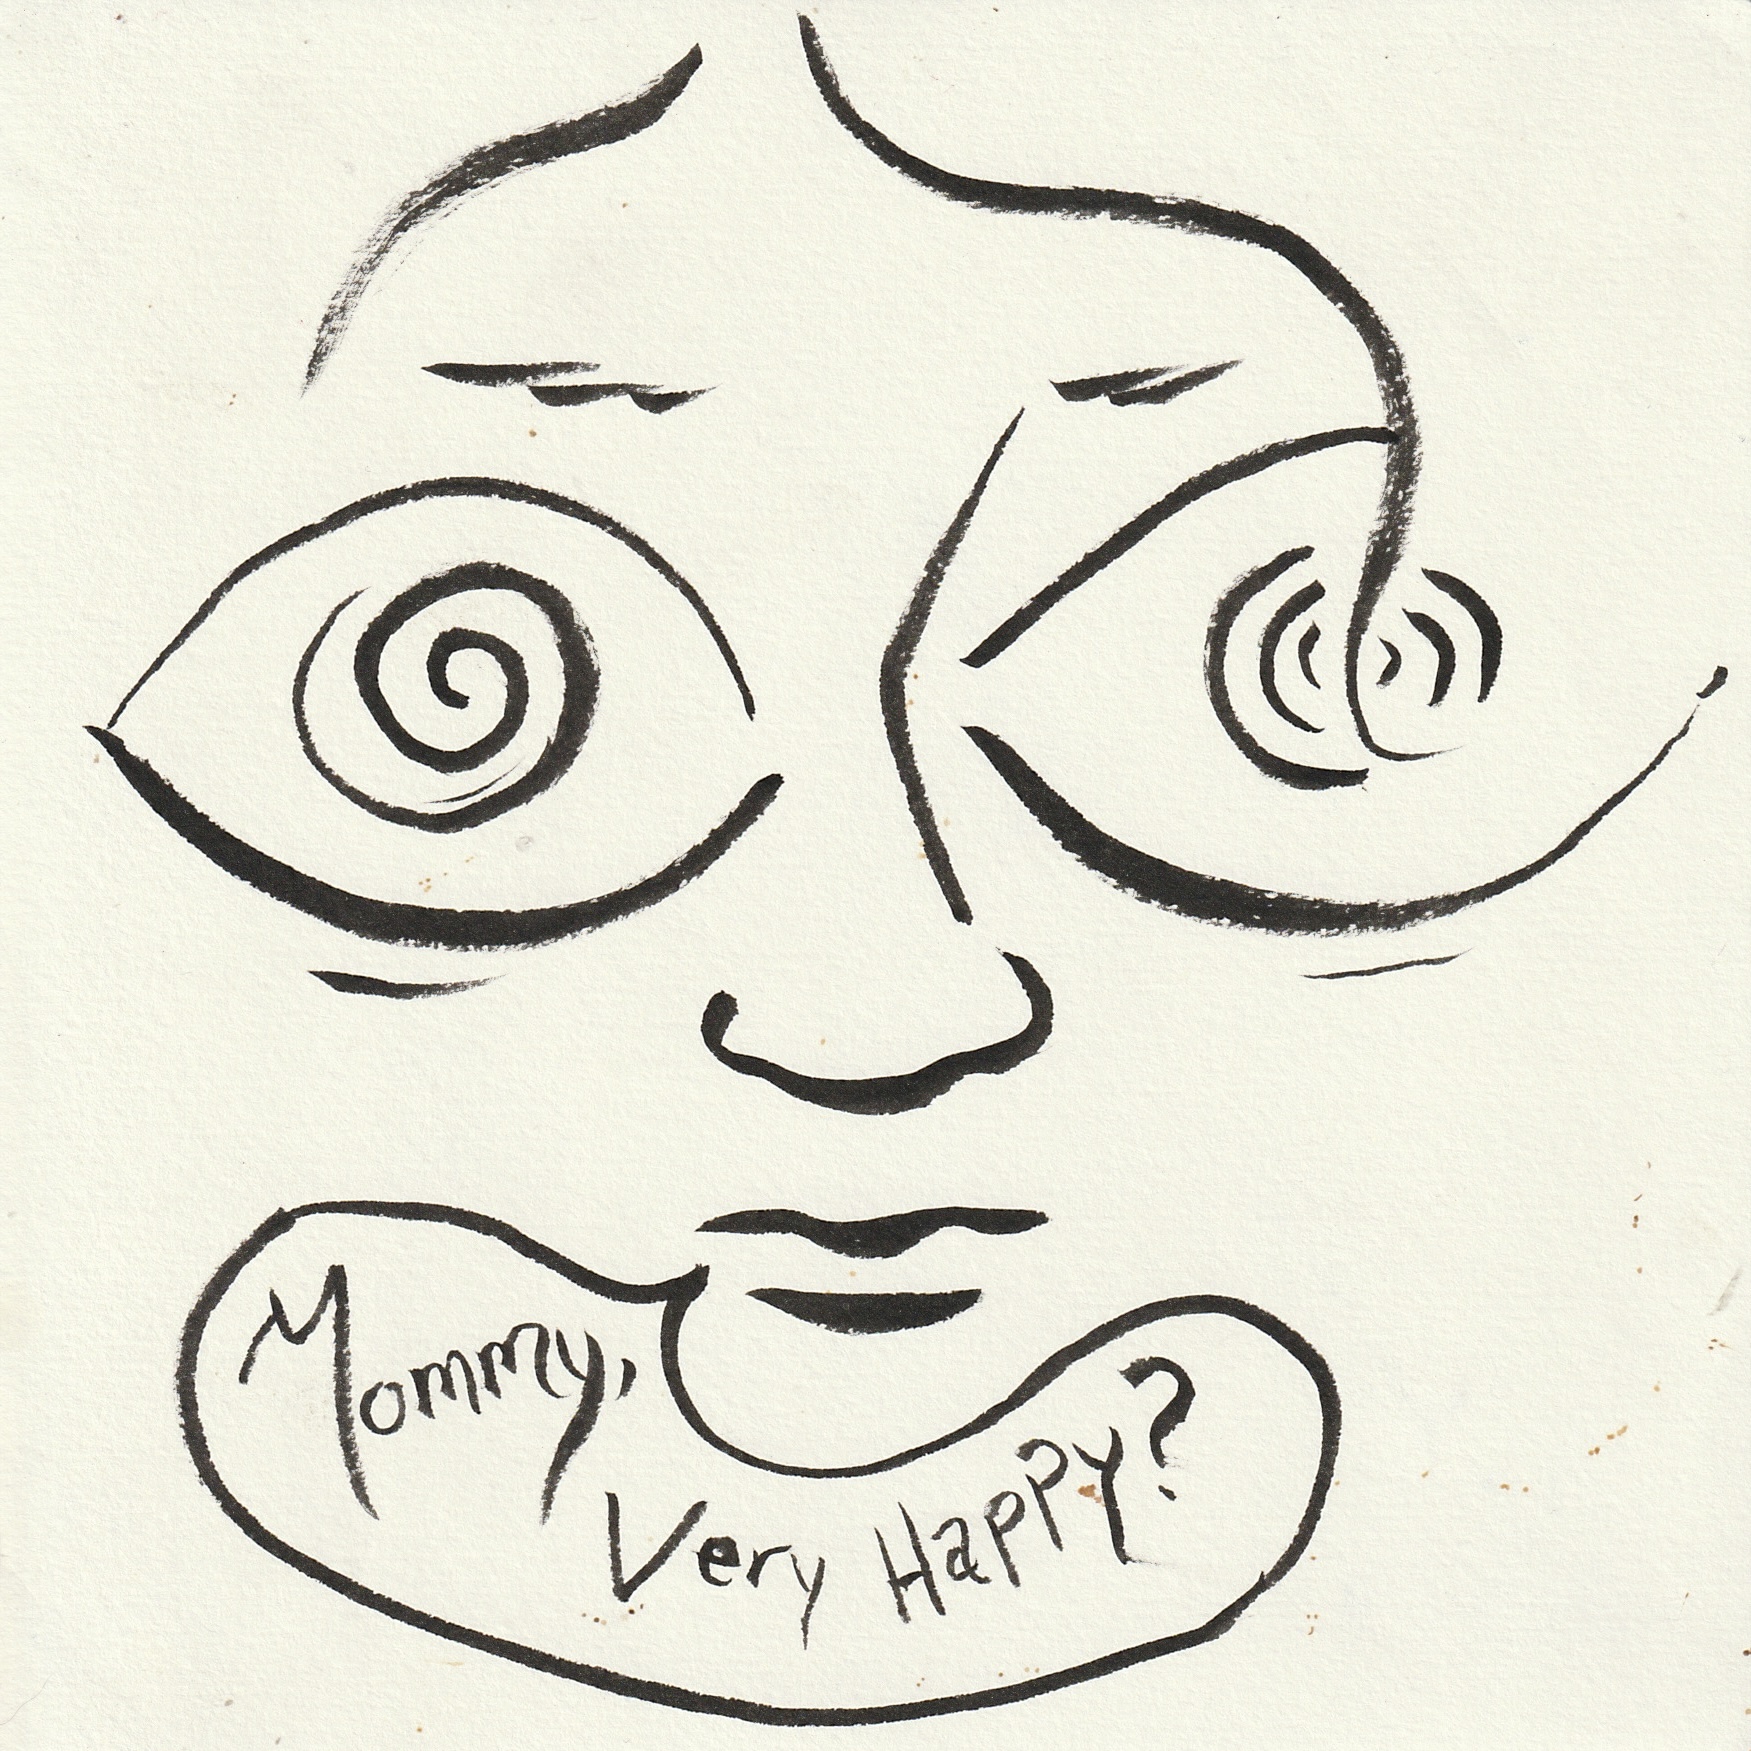 Mommy,
Very Happy?